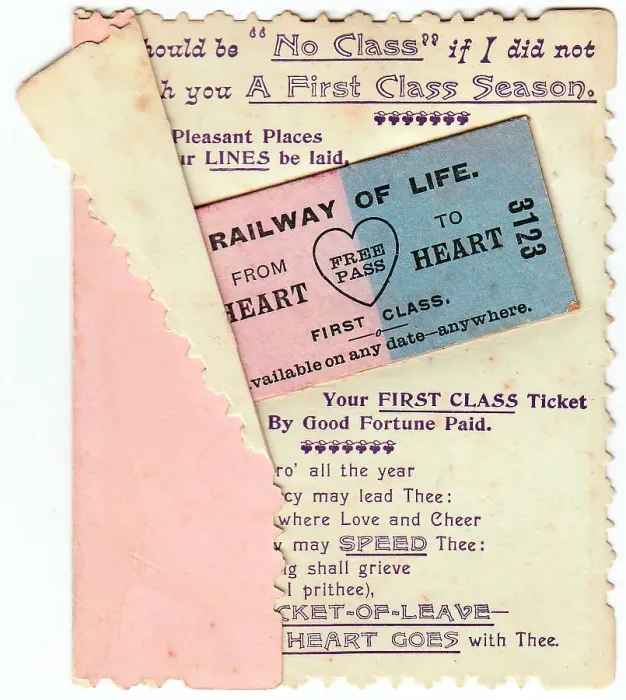 hould be "No Class" if I did not
h you A First Class Season.
Pleasant Places
ur LINES be laid,
RAILWAY OF LIFE.
FROM HEART
FREE PASS
TO HEART
3123
FIRST CLASS.
vailable on any date—anywhere.
Your FIRST CLASS Ticket
By Good Fortune Paid.
ro' all the year
cy may lead Thee:
where Love and Cheer
may SPEED Thee:
g shall grieve
I prithee),
CKET-OF-LEAVE—
HEART GOES with Thee.